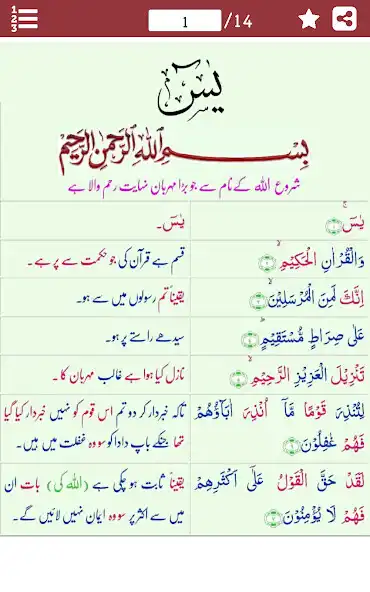 1 2 3
1 /14
يٰسٓ
بِسْمِ اللهِ الرَّحْمٰنِ الرَّحِيْمِ
شروع الله کے نام سے جو بڑا مہربان نہایت رحم والا ہے
يٰسٓ ۚ ۝۱
یٰسٓ۔
وَالْقُرْاٰنِ الْحَكِيْمِ ۙ ۝۲
قسم ہے قرآن کی جو حکمت سے پر ہے۔
اِنَّكَ لَمِنَ الْمُرْسَلِيْنَ ۙ ۝۳
یقیناً تم رسولوں میں سے ہو۔
عَلٰى صِرَاطٍ مُّسْتَقِيْمٍ ؕ ۝۴
سیدھے راستے پر ہو۔
تَنْزِيْلَ الْعَزِيْزِ الرَّحِيْمِ ۙ ۝۵
نازل کیا ہوا ہے غالب مہربان کا۔
لِتُنْذِرَ قَوْمًا مَّاۤ اُنْذِرَ اٰبَآؤُهُمْ
فَهُمْ غٰفِلُوْنَ ۝۶
تاکہ خبردار کر دو تم اس قوم کو نہیں خبردار کیا گیا
تھا جنکے باپ دادا کو سو وہ غفلت میں ہیں۔
لَقَدْ حَقَّ الْقَوْلُ عَلٰٓى اَكْثَرِهِمْ
فَهُمْ لَا يُؤْمِنُوْنَ ۝۷
یقیناً ثابت ہو چکی ہے (الله کی) بات ان
میں سے اکثر پر سو وہ ایمان نہیں لائیں گے۔